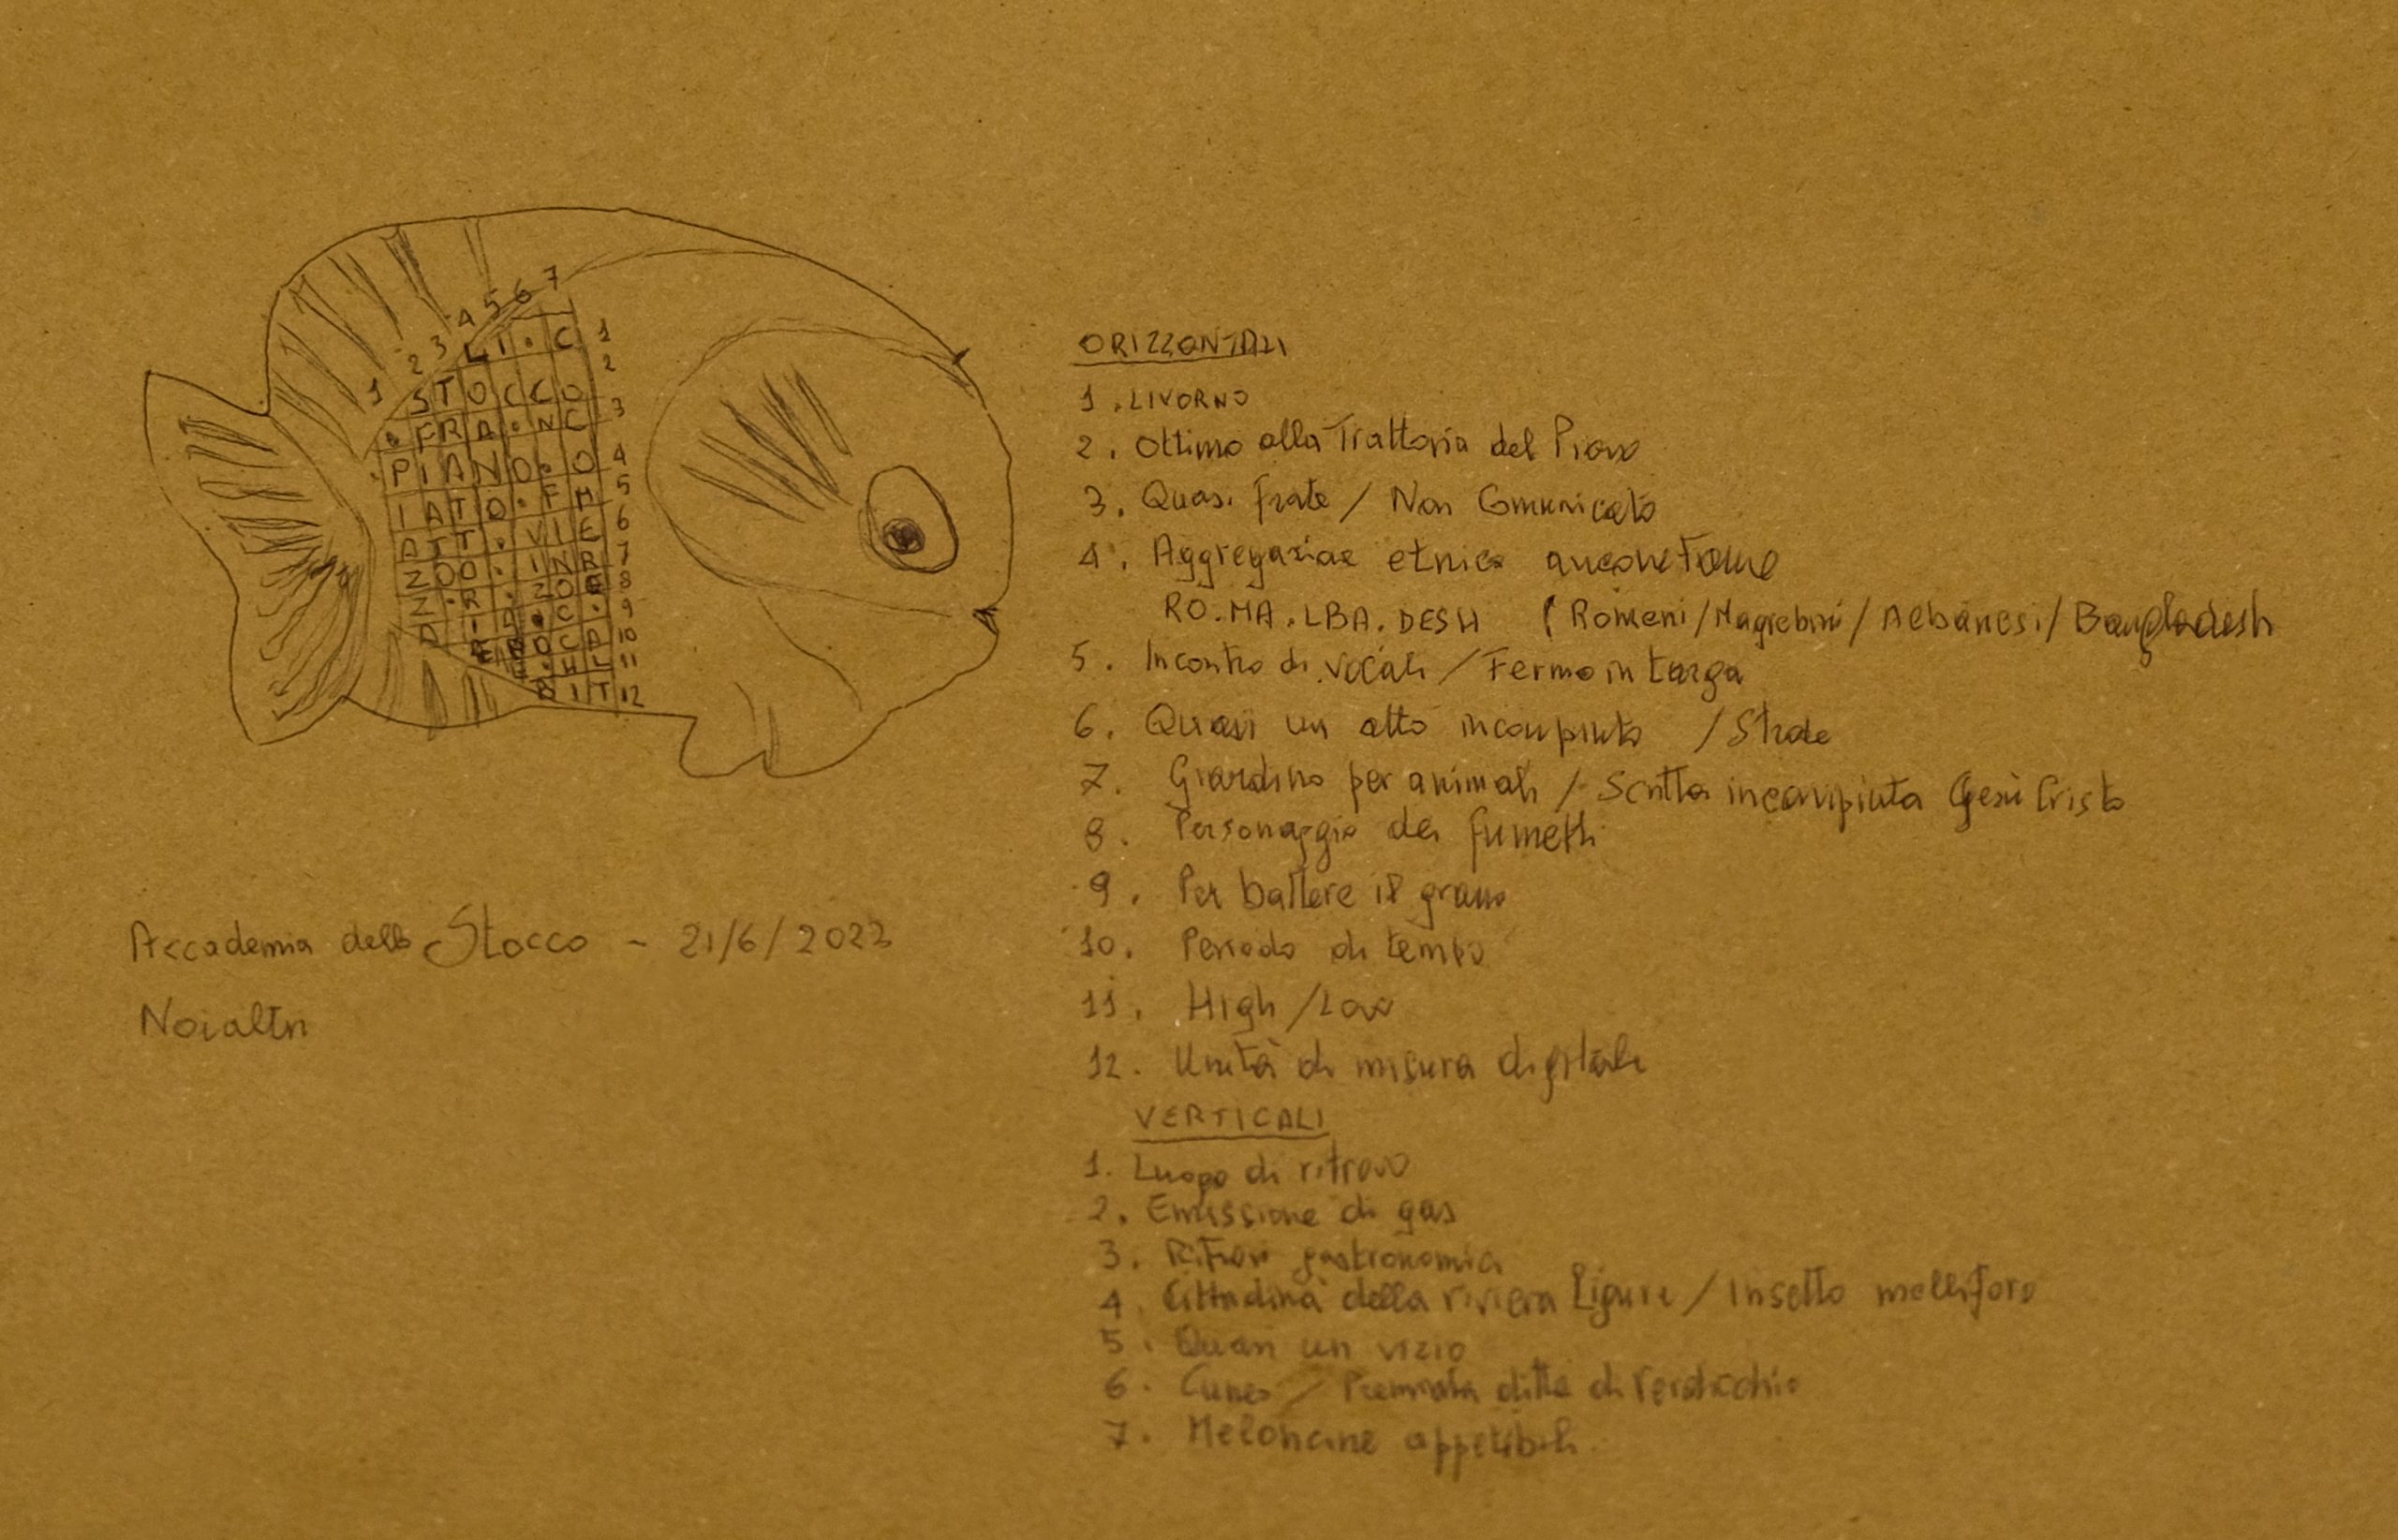 1 2 3 4 5 6 7
L I . C 1
S T O C C O 2
. F R A . N C 3
P I A N O . O 4
I A T O . F M 5
A T T . V I E 6
Z O O . I N R 7
Z . R . Z O E 8
A I A . C . 9
E P O C A 10
. H L 11
B I T 12
ORIZZONTALI
1. LIVORNO
2. Ottimo alla Trattoria del Piano
3. Quasi frate / Non Comunicato
4. Aggregazione etnica anconetana
RO.MA.LBA.DESH (Romeni/Magrebini/Albanesi/Bangladesh
5. Incontro di vocali / Fermo in targa
6. Quasi un atto incompiuto / Strade
7. Giardino per animali / Scritta incompiuta Gesù Cristo
8. Personaggio dei fumetti
9. Per battere il grano
10. Periodo di tempo
11. High / Low
12. Unità di misura digitale
VERTICALI
1. Luogo di ritrovo
2. Emissione di gas
3. gastronomia
4. Cittadina della riviera Ligure / Insetto mellifero
5. Quasi un vizio
6. Cuneo / Premiata ditta di Verdicchio
7. appetibili
Accademia dello Stocco - 21/6/2023
Noialtri